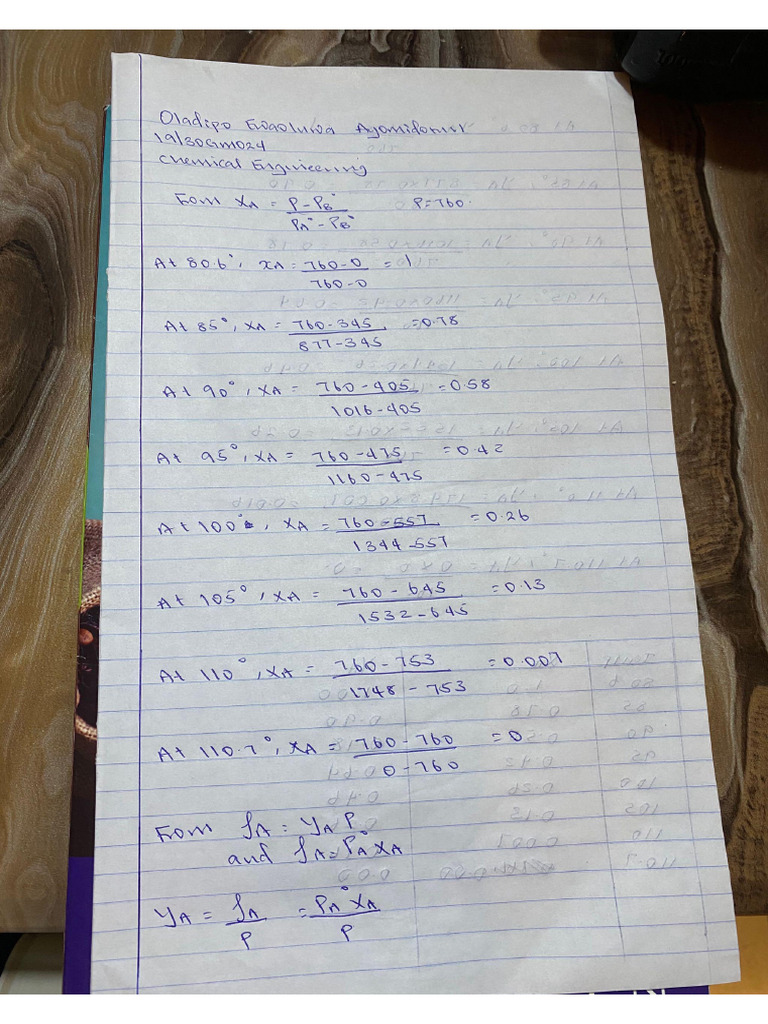 Oladipo Ayomidotun
19/30GM024
Chemical Engineering
From XA = P - PB° / PA° - PB° P=760.
At 80.6°, XA = 760-0 / 760-0 = 1
At 85°, XA = 760-345 / 877-345 = 0.78
At 90°, XA = 760-405 / 1016-405 = 0.58
At 95°, XA = 760-475 / 1160-475 = 0.42
At 100°, XA = 760-557 / 1344-557 = 0.26
At 105°, XA = 760-645 / 1532-645 = 0.13
At 110°, XA = 760-753 / 1748-753 = 0.007
At 110.7°, XA = 760-760 / 0-760 = 0
From ʃA = yA P
and ʃA = PA° XA
yA = ʃA / P = PA° XA / P